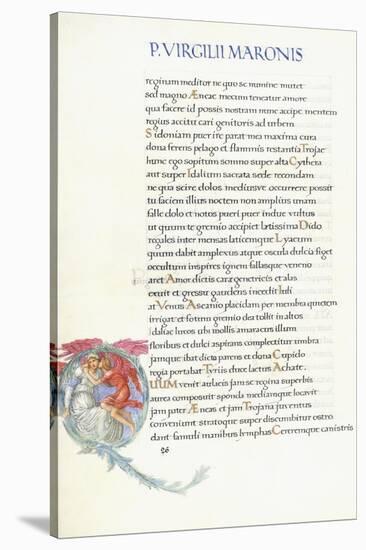 P. VIRGILII MARONIS
reginam meditor ne quo se numine mutet
sed magno Æneae mecum teneatur amore
qua facere id possis nostram nunc accipe mentem
regius accitu cari genitoris ad urbem
Sidoniam puer ire parat mea maxima cura
dona ferens pelago et flammis restantia Trojae
hunc ego sopitum somno super alta Cythera
aut super Idalium sacrata sede recondam
ne qua scire dolos mediusve occurrere possit
tu faciem illius noctem non amplius unam
falle dolo et notos pueri puer indue vultus
ut quum te gremio accipiet latissima Dido
regales inter mensas laticemque Lyæum
quum dabit amplexus atque oscula dulcia figet
occultum inspires ignem fallasque veneno
aret Amor dictis caræ genetricis et alas
exuit et gressu gaudens incedit Iuli
at Venus Ascanio placidam per membra quietem
irrigat et fotum gremio dea tollit in altos
Idaliæ lucos ubi mollis amaracus illum
floribus et dulci aspirans complectitur umbra
jamque ibat dicto parens et dona Cupido
regia portabat Tyriis duce lætus Achate
QUUM venit aulæis jam se regina superbis
aurea composuit sponda mediamque locavit
jam pater Æneas et jam Trojana juventus
conveniunt stratoque super discumbitur ostro
dant famuli manibus lymphas Cereremque canistris
26